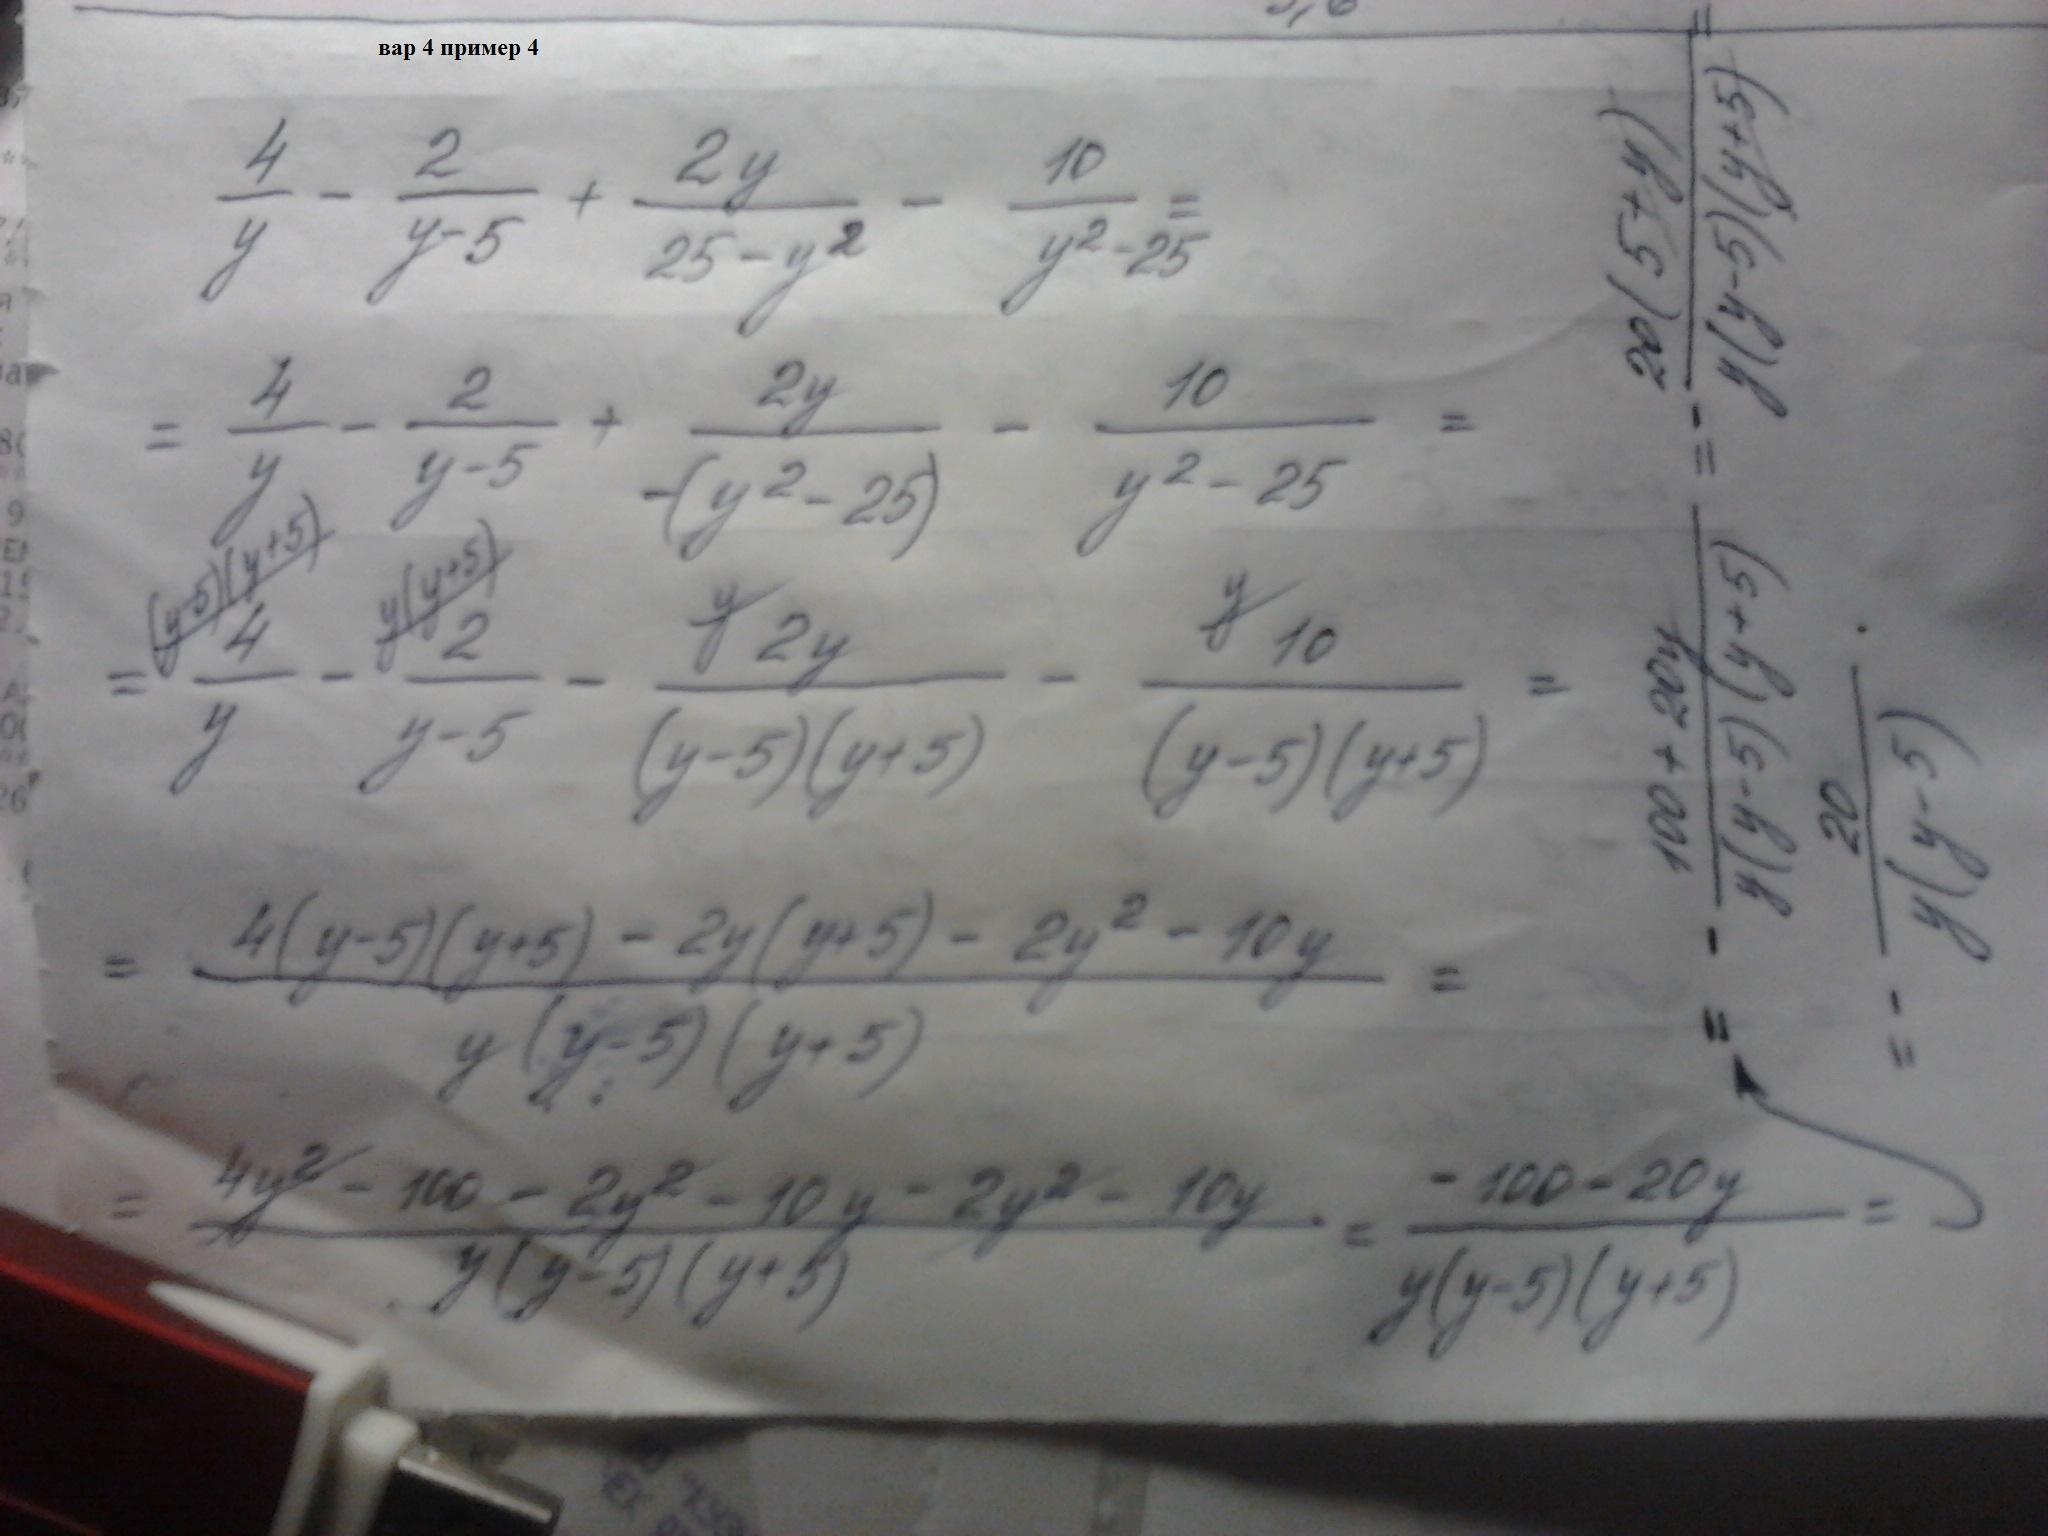 вар 4 пример 4
4/y - 2/(y-5) + 2y/(25-y²) - 10/(y²-25) =
= 4/y - 2/(y-5) + 2y/(-(y²-25)) - 10/(y²-25) =
(y-5)(y+5) y(y+5) y y
= 4/y - 2/(y-5) - 2y/((y-5)(y+5)) - 10/((y-5)(y+5)) =
= (4(y-5)(y+5) - 2y(y+5) - 2y² - 10y)/(y(y-5)(y+5)) =
= (4y² - 100 - 2y² - 10y - 2y² - 10y)/(y(y-5)(y+5)) = (-100-20y)/(y(y-5)(y+5)) =
= - (100+20y)/(y(y-5)(y+5)) = - 20(5+y)/(y(y-5)(y+5)) =
= - 20/(y(y-5)).